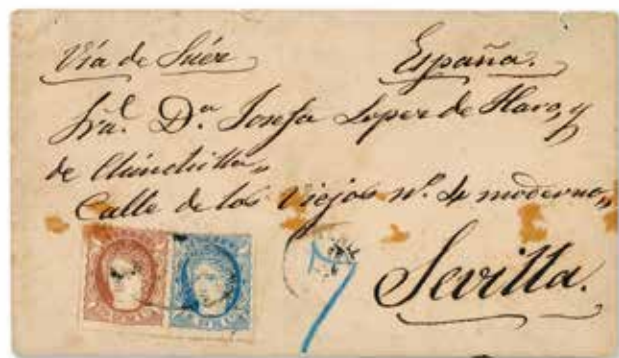 Vía de Suéz España.
Sra. Dª. Josefa Lopez de Haro, y
de Chinchilla,,
Calle de los Viejos nº. 4 moderno,,
Sevilla.
7